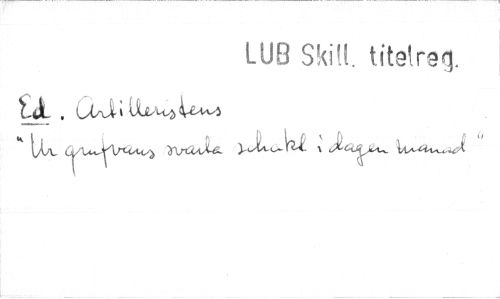 LUB Skill. titelreg.
Ed. Artilleristens
"Ur grufvans svarta schakt i dagen manad"